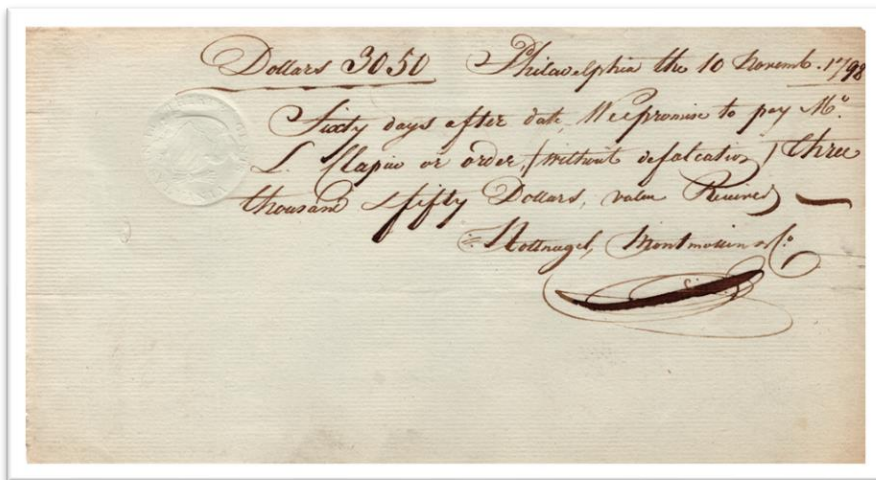 Dollars 3050 Philadelphia the 10 Novemb. 1798
Sixty days after date, We promise to pay Mr.
L. Clapier or order, / without defalcation / three
thousand & fifty Dollars, value Received
Nottnagel, Montmollin & Co.